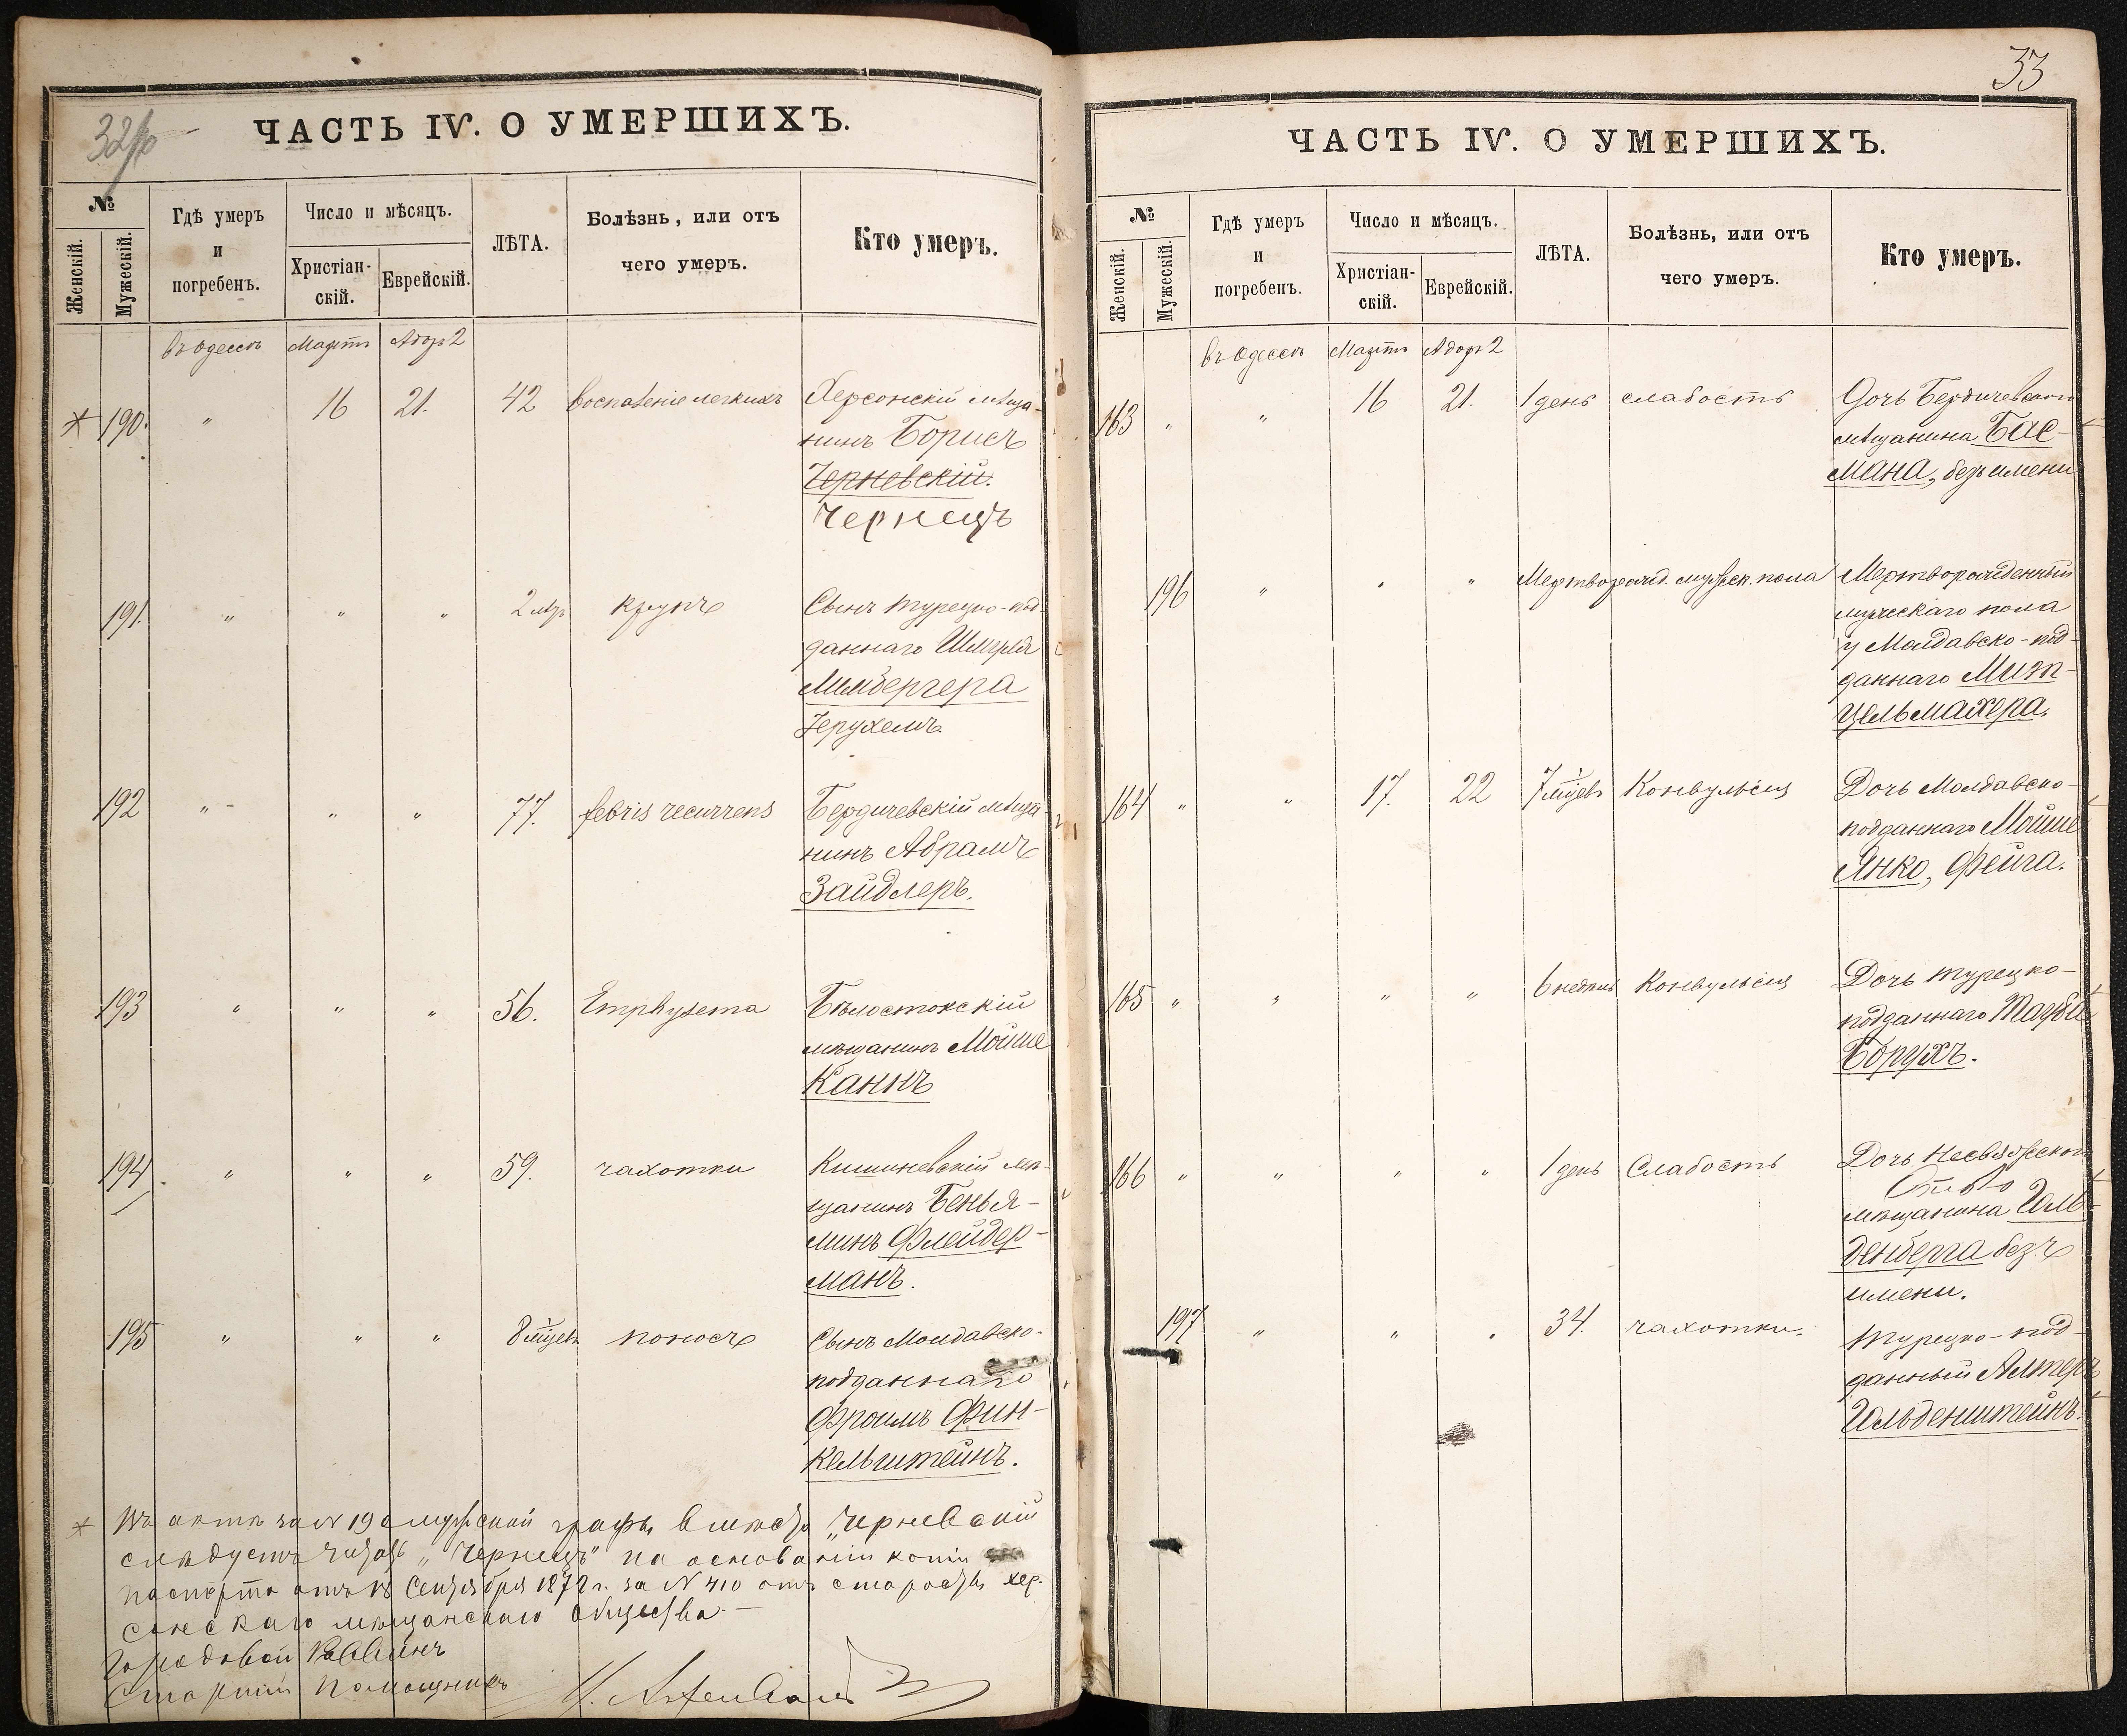 ЧАСТЬ IV. О УМЕРШИХЪ.
№
Женскій.
Мужескій.
Гдѣ умеръ
и
погребенъ.
Число и мѣсяцъ.
Христіан-
скій.
Еврейскій.
ЛѢТА.
Болѣзнь, или отъ
чего умеръ.
Кто умеръ.
въ Одессѣ Мартъ Адоръ 2
* 190. " 16 21. 42 воспаленіе легкихъ Херсонскій мѣща-
нинъ Борисъ
Черневскій.
Чернецъ
191. " " " 2 лѣтъ крупъ Сынъ турецко-под-
даннаго
Мильбергера
Іерухемъ
192 " - " " 77. febris recurrens Бердичевскій мѣща-
нинъ Абрамъ
Зайдлеръ.
193 " " " 56. Emphysema Бѣлостокскій
мѣщанинъ Мойше
Каннъ
194. " " " 59. чахотки Кишиневскій мѣ-
щанинъ Бенья-
минъ Флейдер-
манъ.
195 " " " 8 мѣсяцевъ поносъ Сынъ Молдавско-
подданнаго
Фроимъ Фин-
кельштейнъ.
* Въ актѣ за N 190 мужской графы вмѣсто "Черневскій
слѣдуетъ читать "Чернецъ" на основаніи копіи
паспорта отъ Сентября 1872 г. за N 410 отъ старосты хер-
сонскаго мѣщанскаго общества. -
Городовой Раввинъ
Старшій Помощникъ
33
ЧАСТЬ IV. О УМЕРШИХЪ.
№
Женскій.
Мужескій.
Гдѣ умеръ
и
погребенъ.
Число и мѣсяцъ.
Христіан-
скій.
Еврейскій.
ЛѢТА.
Болѣзнь, или отъ
чего умеръ.
Кто умеръ.
въ Одессѣ Мартъ Адоръ 2
163 " " 16 21. 1 день слабость Дочь Бердичевскаго
мѣщанина Бас-
мана, безъ имени
196 " " " Мертворожд. мужск. пола Мертворожденный
мужескаго пола
у Молдавско-под-
даннаго Мит-
цельмахера.
164 " " 17. 22 7 мѣсяцевъ Конвульсія Дочь Молдавско-
подданнаго Мойше
Янко, Фейга.
165 " " " " 6 недѣль Конвульсія Дочь турецко-
подданнаго Таубы
Борухъ.
166 " " " " 1 день Слабость Дочь Несвижскаго
мѣщанина Голь-
денберга безъ
имени.
197 " " " 34. чахотки. Турецко-под-
данный Алтеръ
Гольденштейнъ.